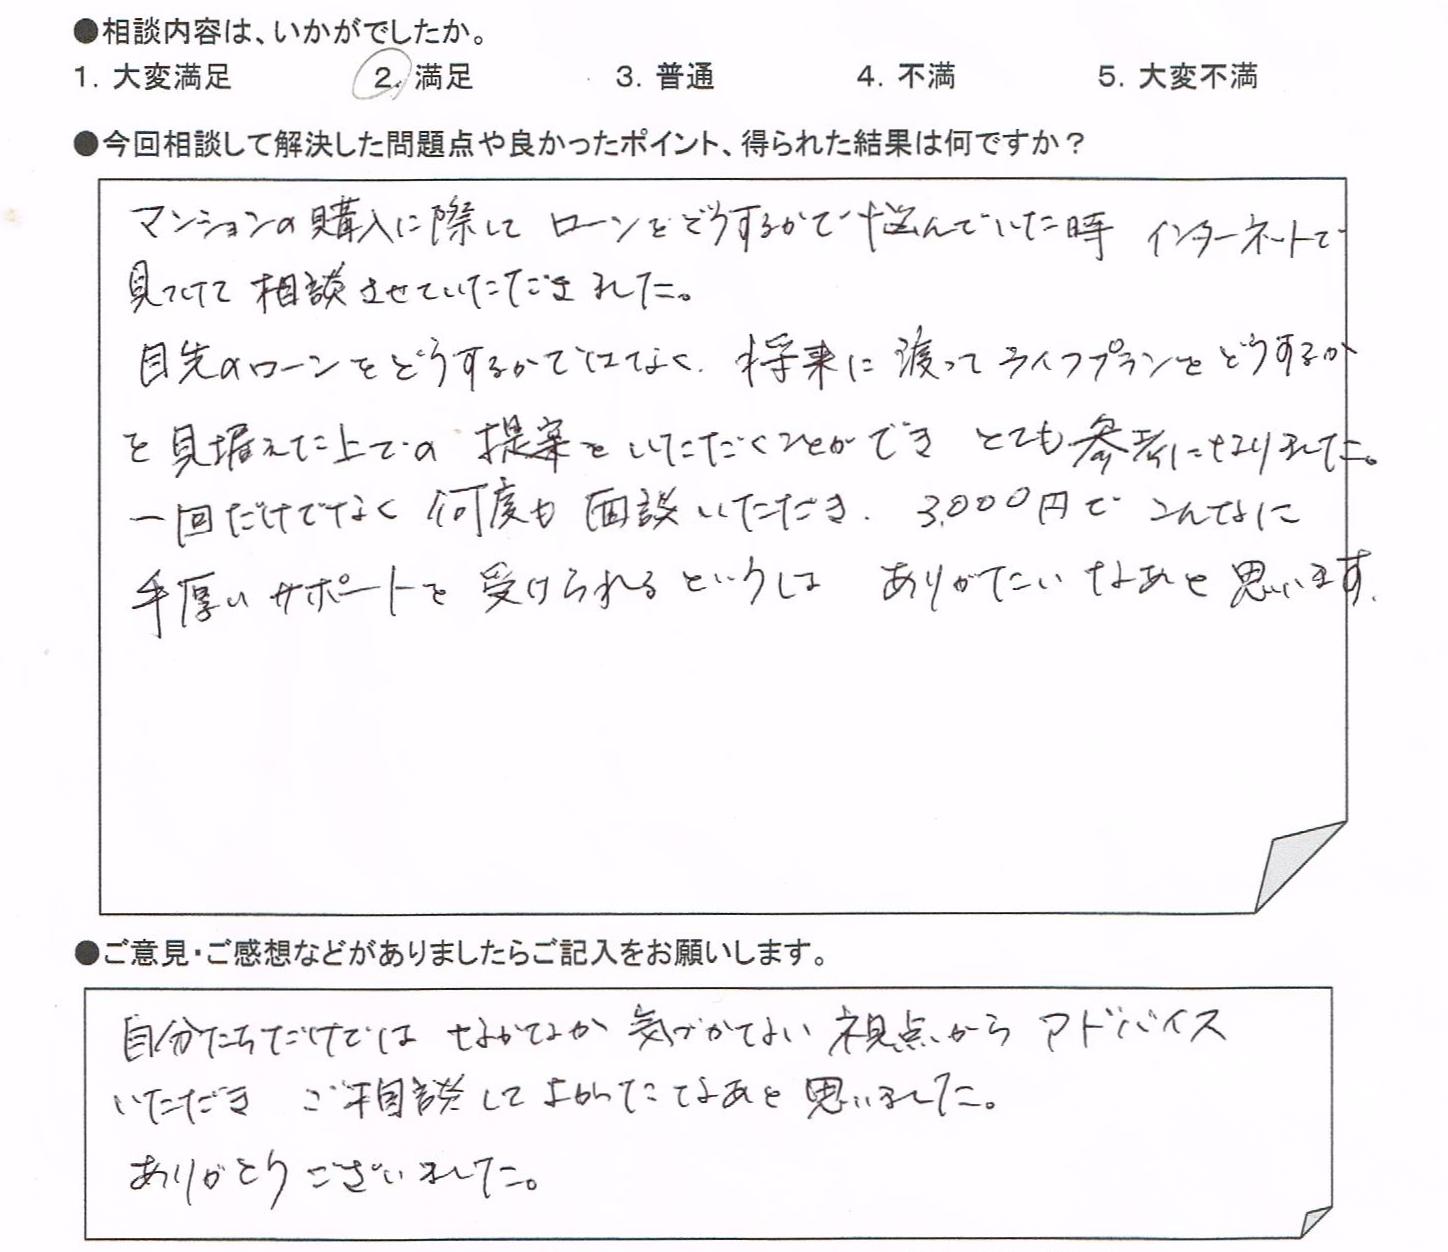 ●相談内容は、いかがでしたか。
1. 大変満足 2. 満足 3. 普通 4. 不満 5. 大変不満
●今回相談して解決した問題点や良かったポイント、得られた結果は何ですか？
マンションの購入に際して ローンをどうするかで悩んでいた時 インターネットで
見つけて 相談させていただきました。
目先のローンをどうするかではなく、将来に渡ってライフプランをどうするか
を見据えた上での 提案をいただくことができ とても参考になりました。
一回だけでなく 何度も 面談いただき、3,000円で こんなに
手厚いサポートを 受けられるというのは ありがたいなあと思います。
●ご意見・ご感想などがありましたらご記入をお願いします。
自分たちだけでは なかなか 気づかない 視点から アドバイス
いただき ご相談して よかったなあと 思いました。
ありがとうございました。